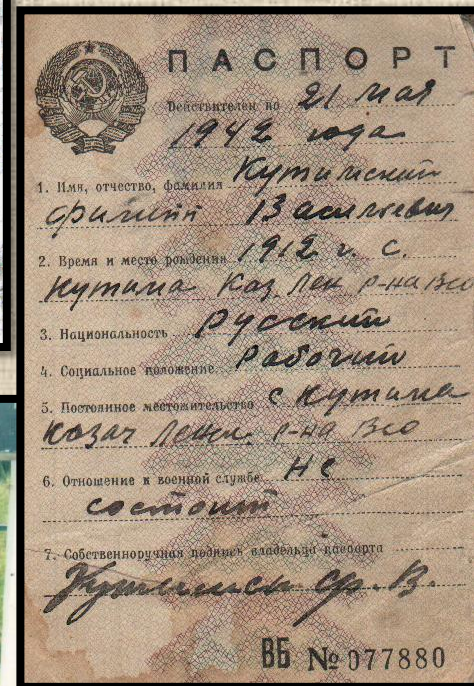 ПАСПОРТ
Действителен по 21 мая
1942 года
1. Имя, отчество, фамилия Кутимский
Филипп Васильевич
2. Время и место рождения 1912 г. с.
Кутима Каз Лен р-на Всо
3. Национальность Русский
4. Социальное положение Рабочий
5. Постоянное местожительство с Кутима
Казач Ленин. р-на Всо
6. Отношение к военной службе Не
состоит
7. Собственноручная подпись владельца паспорта
Ф. В.
ВБ № 077880